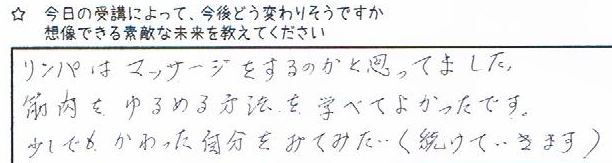 ☆ 今日の受講によって、今後どう変わりそうですか
想像できる素敵な未来を教えてください
リンパは マッサージをするのかと思ってました。
筋肉を ゆるめる方法を 学べてよかったです。
少しでも かわった自分を みてみたい(続けていきます)